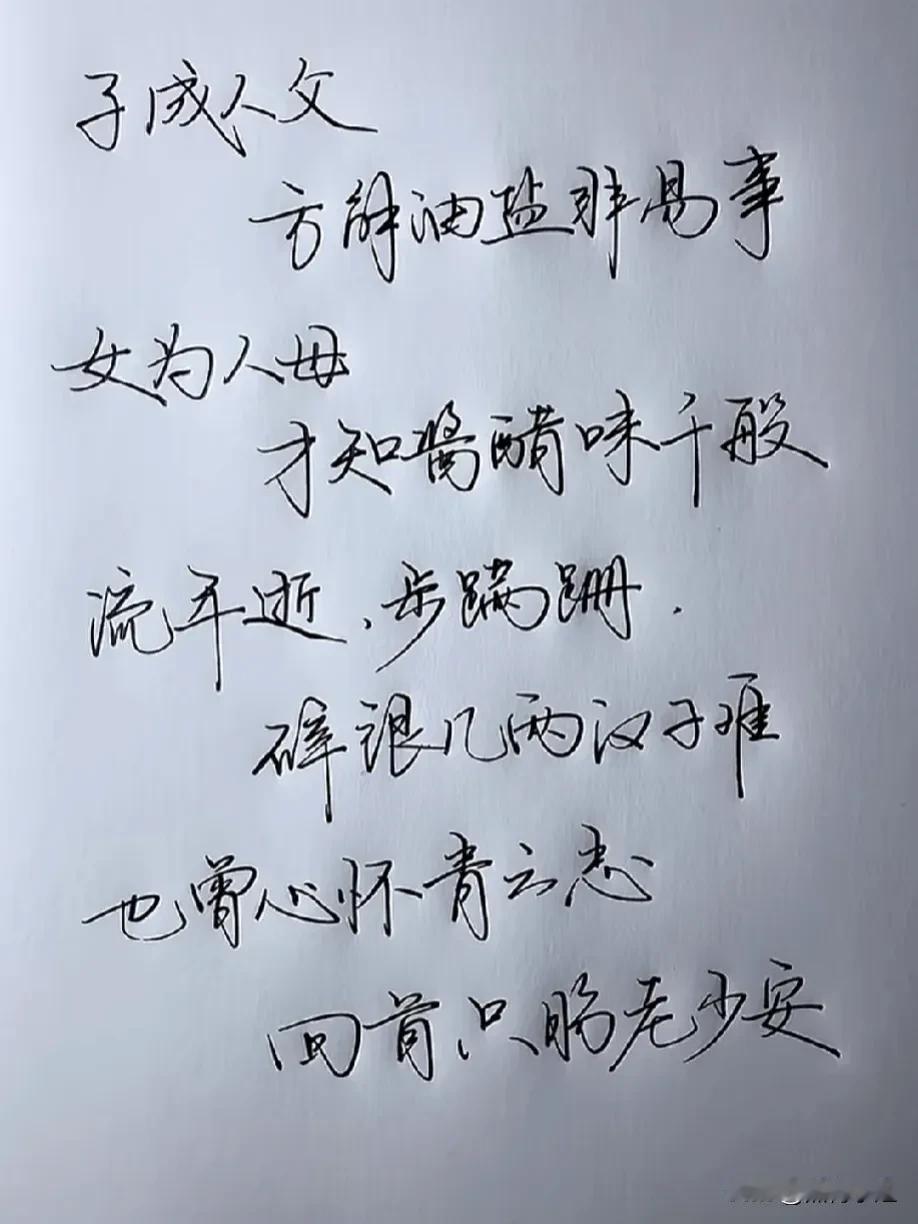 子成人父
方解油盐非易事
女为人母
才知酱醋味千般
流年逝、步蹒跚.
碎银几两汉子难
也曾心怀青云志
回首只盼老少安